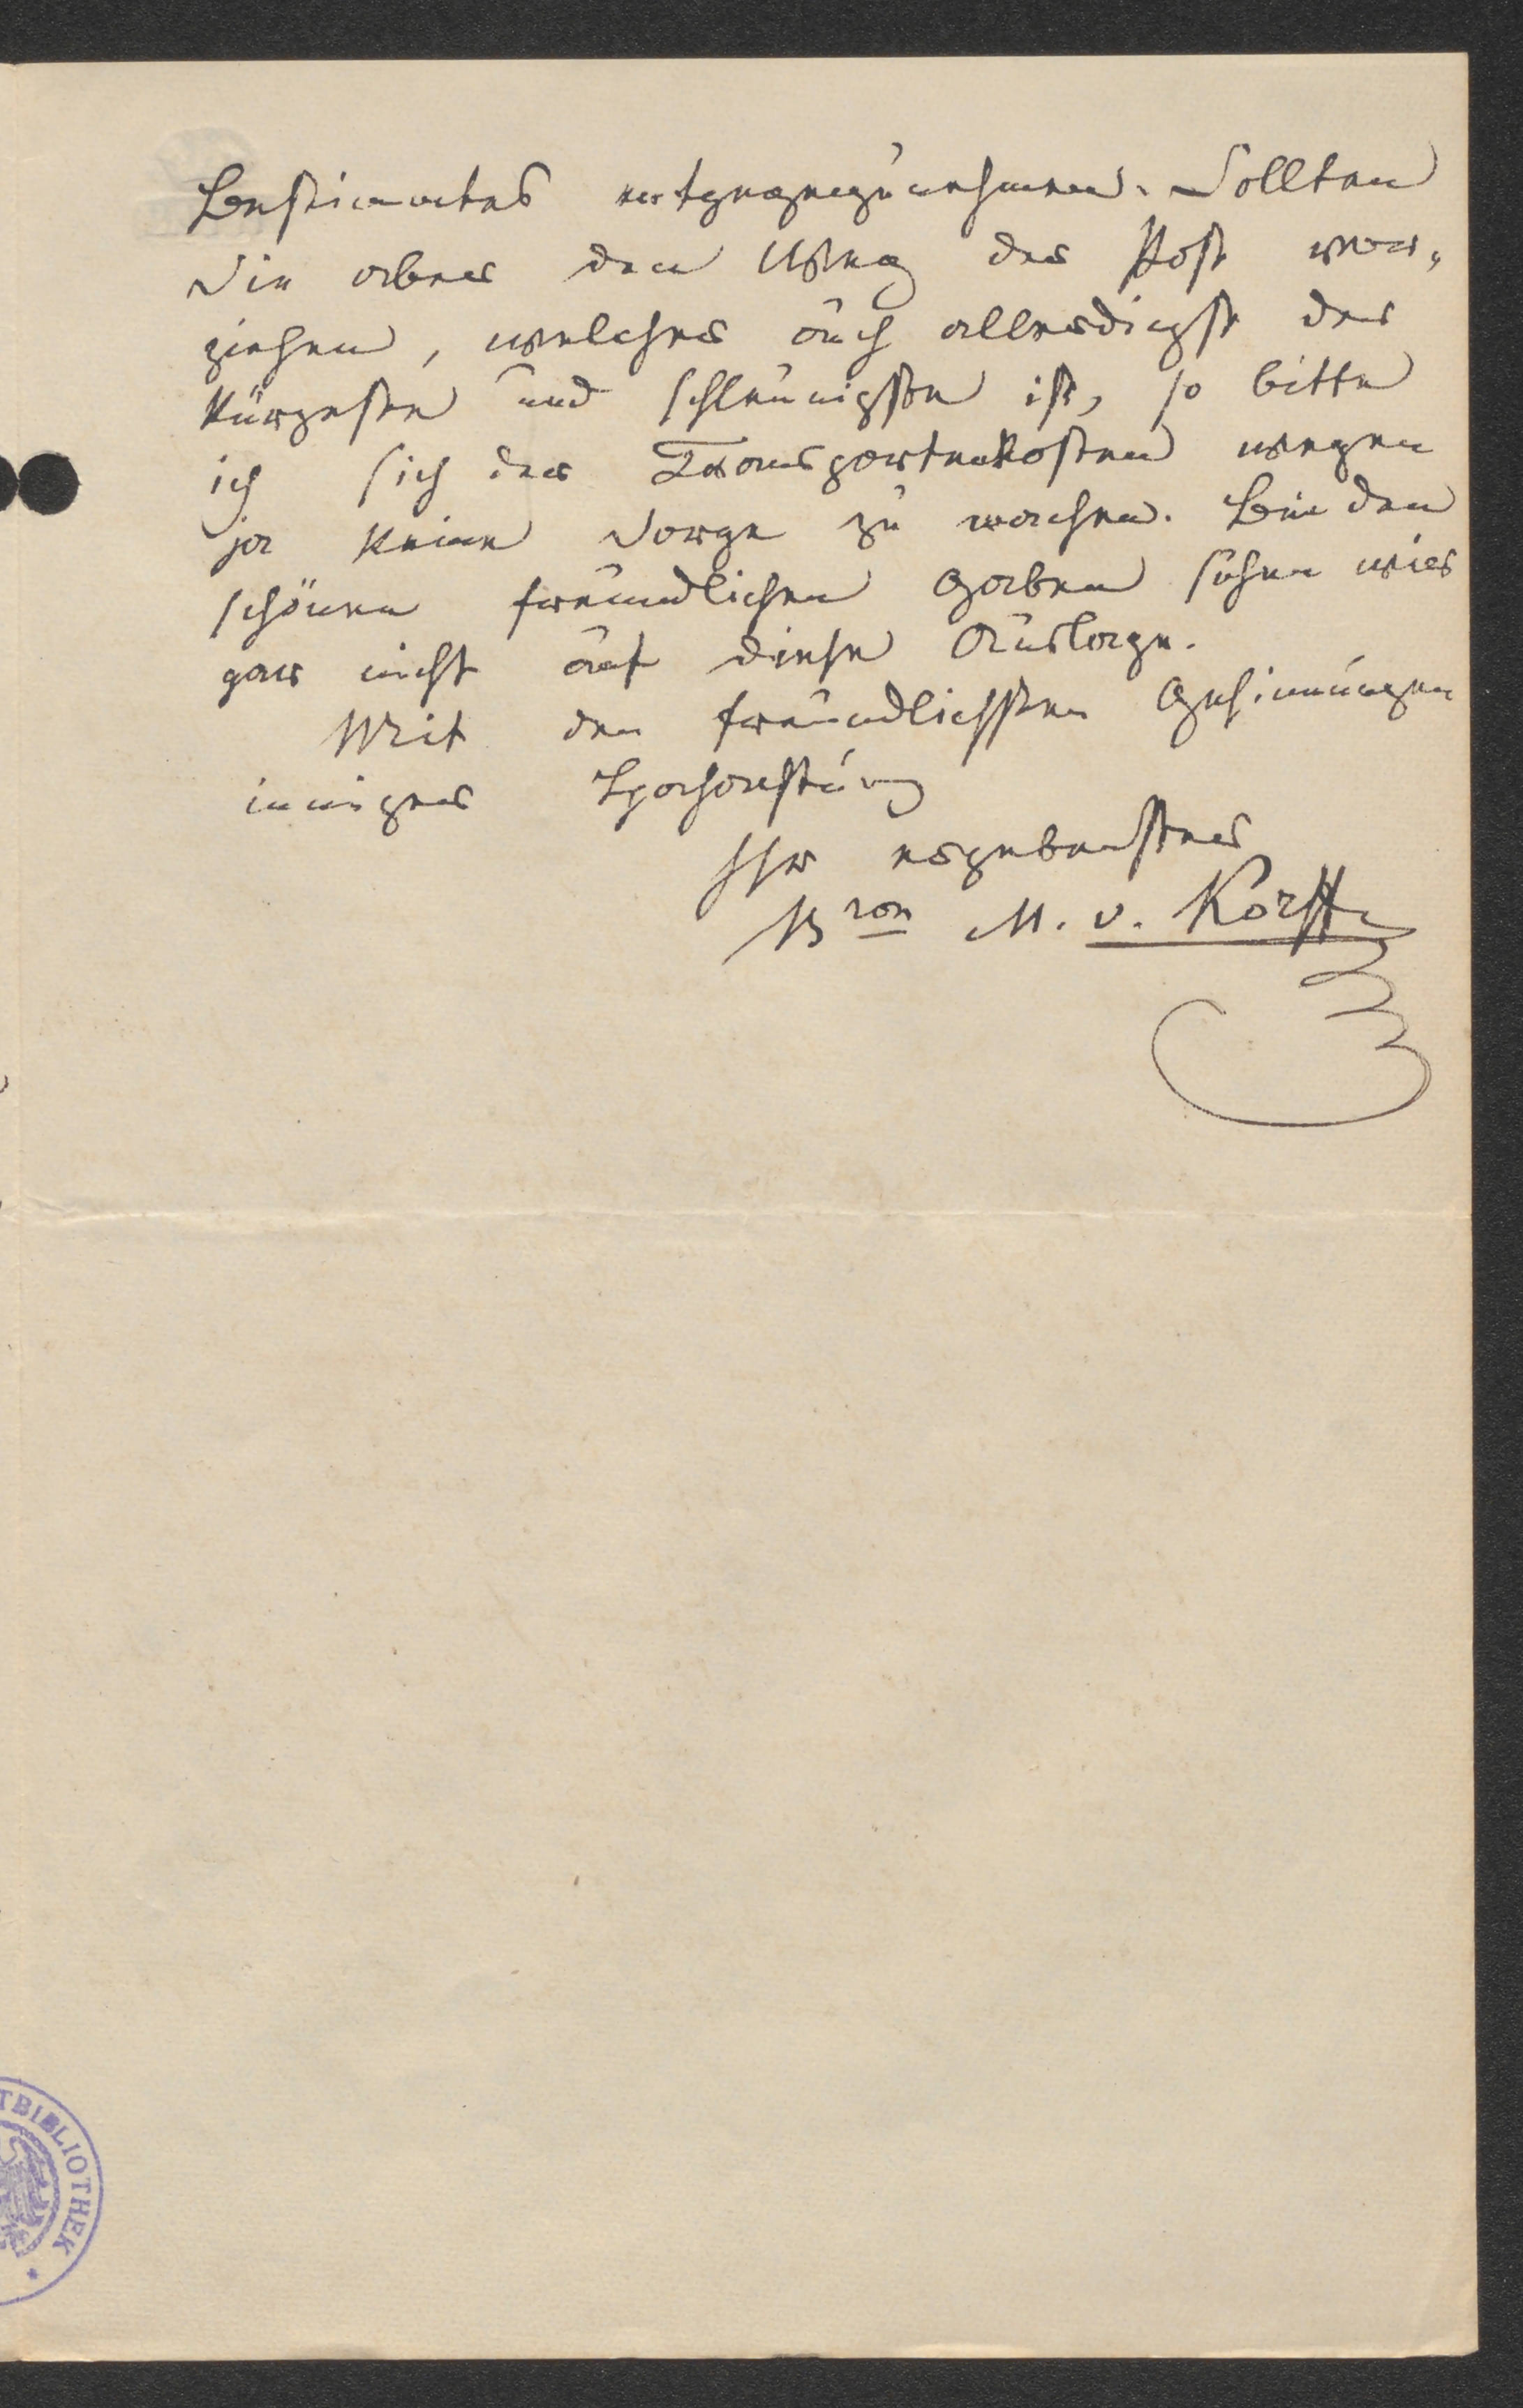 Bestimmtes entgegenzunehmen. Sollten
Sie aber den Weg der Post vor„
ziehen, welcher auch allerdigst der
kürzeste und schleunigste ist, so bitte
ich sich der Transportenkosten wegen
ja keine Sorge zu machen. Bei den
schönen freundlichen Gaben sehen wir
gar nicht auf diese Auslage.
Mit den freundlichsten Gesinnungen
inniger Hochachtung
Ihr ergebenster
Bron M. v. Korff
TBIBLIOTHEK